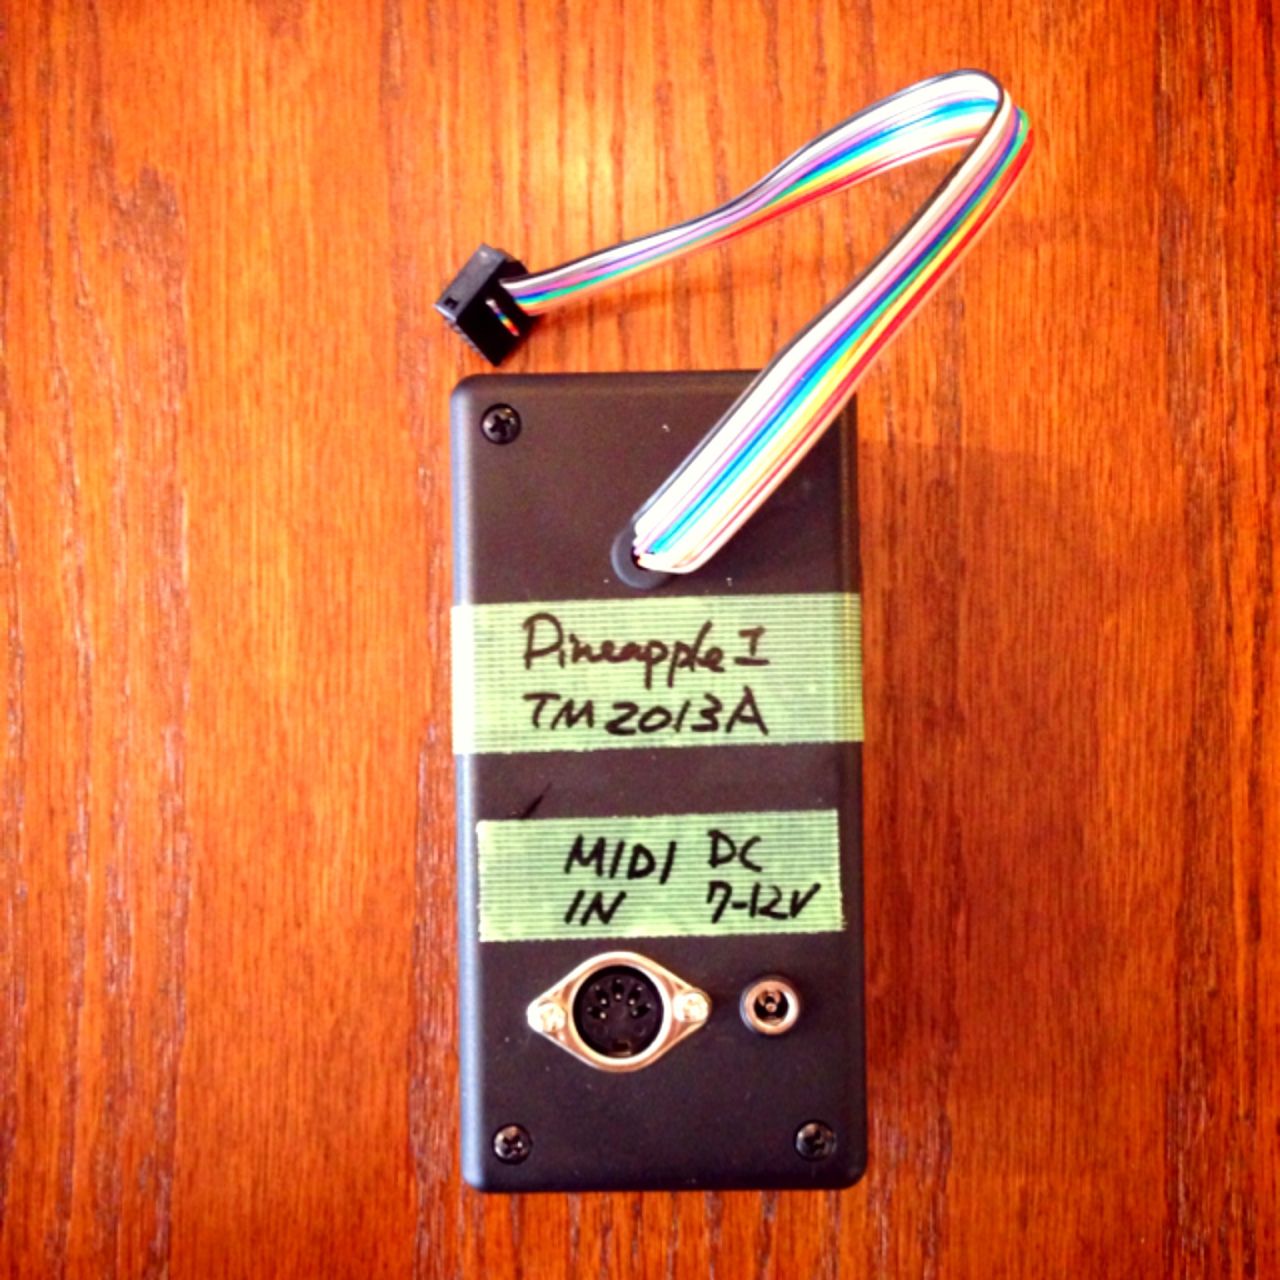 Pineapple I
TM2013A
MIDI DC
IN 7-12V